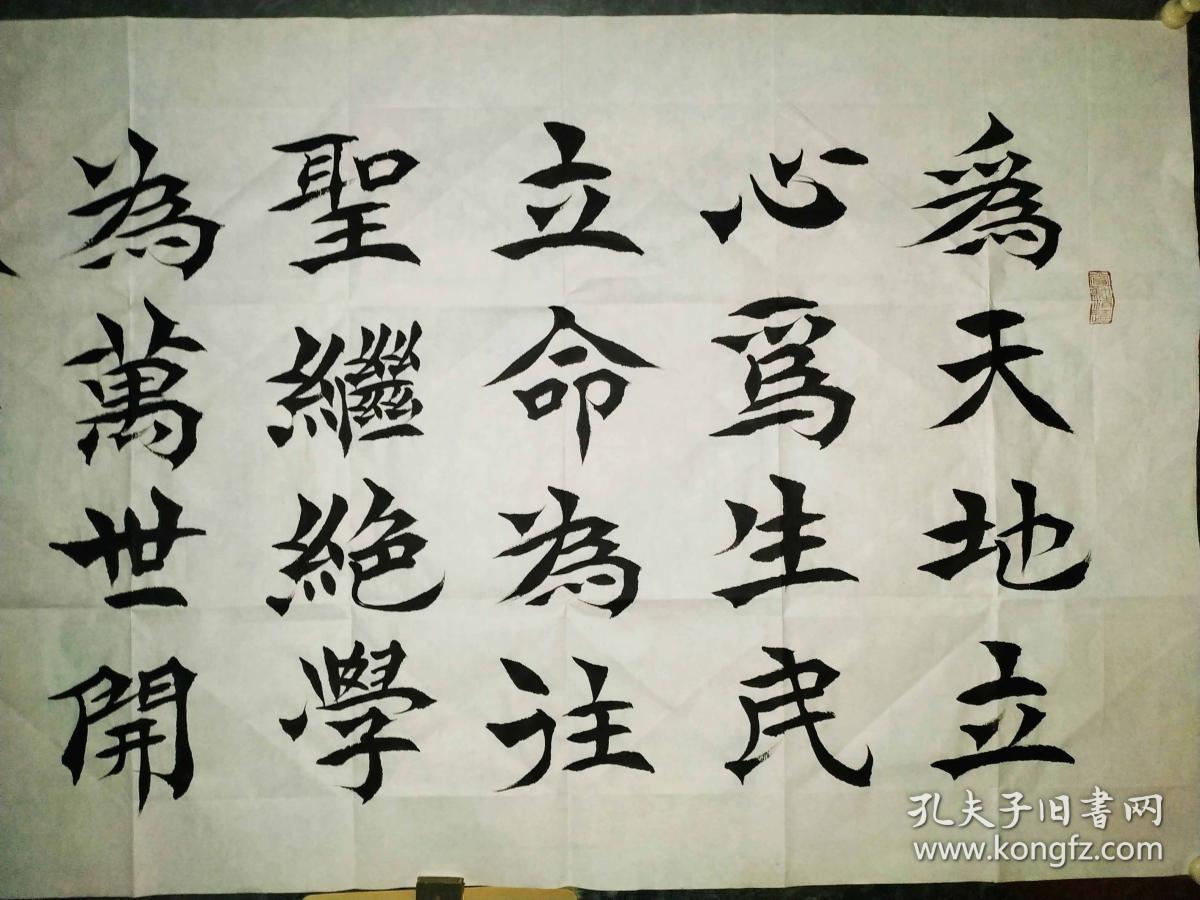 爲天地立
心爲生民
立命為往
聖繼絶學
為萬世開
孔夫子旧書网
www.kongfz.com